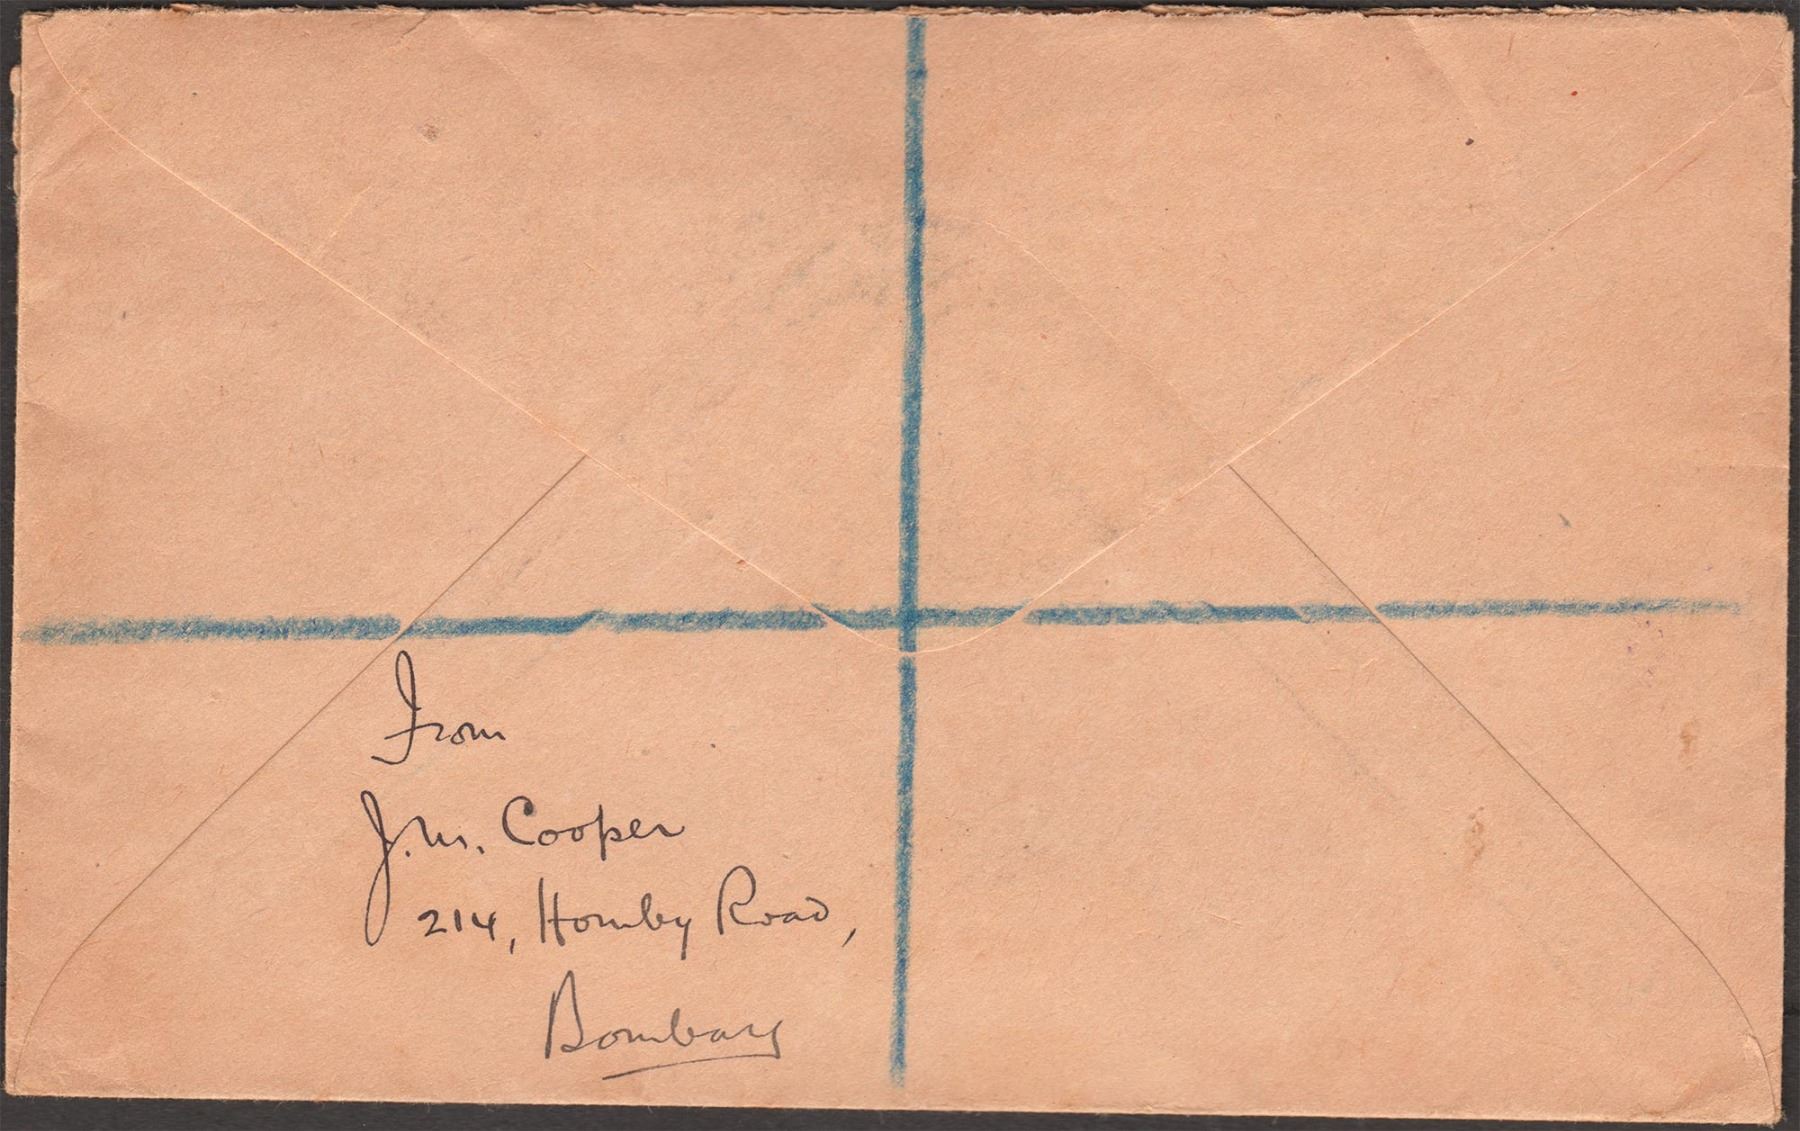 From
J. M. Cooper
214, Hornby Road,
Bombay